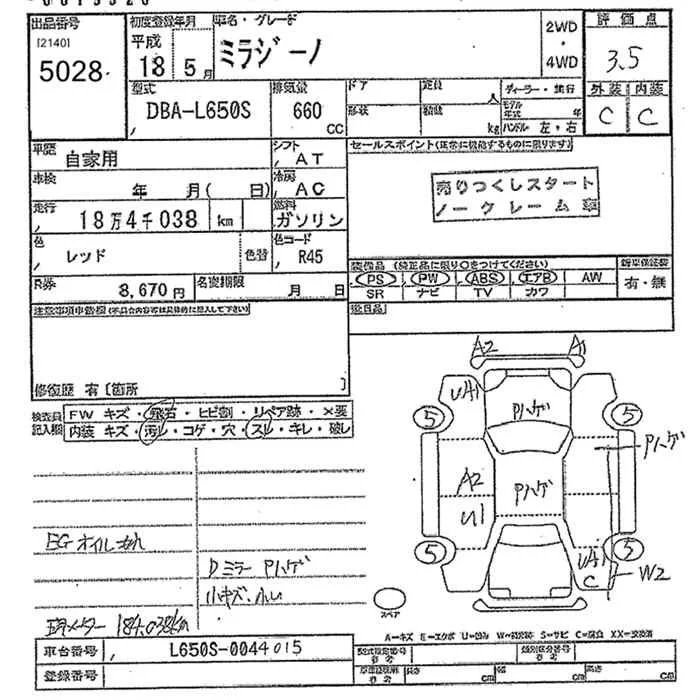 出品番号
[2140]
5028
初度登録年月
平成
18 5月
車名・グレード
ミラジーノ
2WD
・
4WD
評価点
3.5
外装 内装
C C
型式
DBA-L650S
排気量
660
CC
ドア
定員
人
形状
積載
kg
ディーラー・並行
モデル
年式 年
ハンドル 左・右
車歴
自家用
シフト
AT
車検
年 月( 日)
冷房
AC
走行
18万4千038 km
燃料
ガソリン
色
レッド
色替
色コード
R45
R券
8,670 円
名変期限
月 日
セールスポイント(正常に機能するものに限ります)
売りつくしスタート
ノークレーム車
装備品 (純正品に限り○をつけてください)
新車保証書
PS PW ABS エアB AW
SR ナビ TV カワ
有・無
後日品
注意事項申告欄
修復歴 有〔箇所 〕
検査員
記入欄
FW キズ・飛石・ヒビ割・リペア跡・×要
内装 キズ・汚レ・コゲ・穴・スレ・キレ・破レ
EGオイルもれ
Dミラー Pハゲ
小キズ・小凹
現メーター 184,038km
A2 A1
UA1
Pハゲ
5 5
Pハゲ
A2
U1
Pハゲ
5 5
UA1
C
W2
スペア
A=キズ E=エクボ U=凹み W=補修跡 S=サビ C=腐食 XX=交換済
車台番号
L650S-0044015
登録番号
型式指定番号
類別区分番号
長さ cm 幅 cm 高さ cm